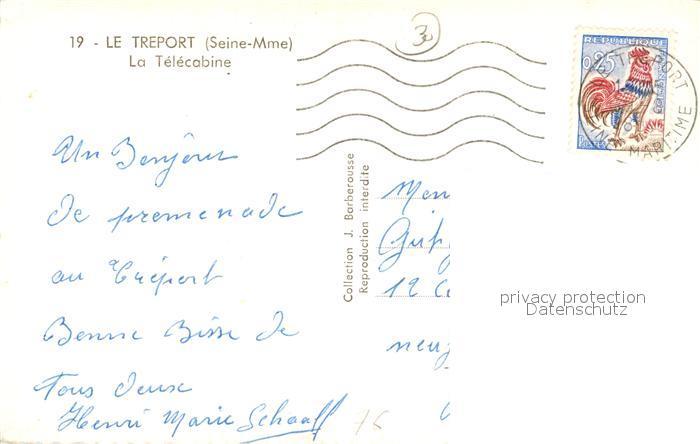 19 - LE TREPORT (Seine-Mme)
La Télécabine
3
REPUBLIQUE
0,25
LE TREPORT
MARITIME
POSTES
Un Bonjour
de promenade
au Tréport
Bonne Bisse de
Tous deux
Henri Marie Schaaff
76
Collection J. Barberousse
Reproduction interdite
12
privacy protection
Datenschutz